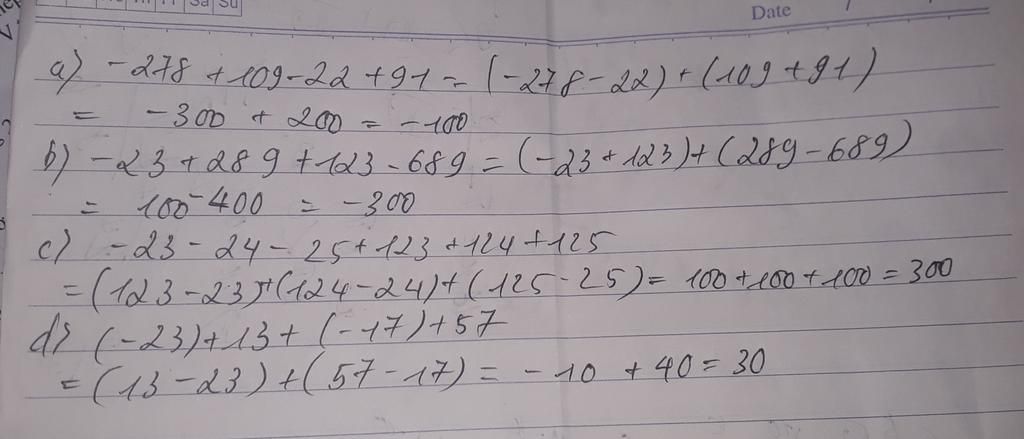 Sa Su
Date
a) -278 + 109 - 22 + 91 = (-278 - 22) + (109 + 91)
= -300 + 200 = -100
b) -23 + 289 + 123 - 689 = (-23 + 123) + (289 - 689)
= 100 - 400 = -300
c) -23 - 24 - 25 + 123 + 124 + 125
= (123 - 23) + (124 - 24) + (125 - 25) = 100 + 100 + 100 = 300
d) (-23) + 13 + (-17) + 57
= (13 - 23) + (57 - 17) = -10 + 40 = 30